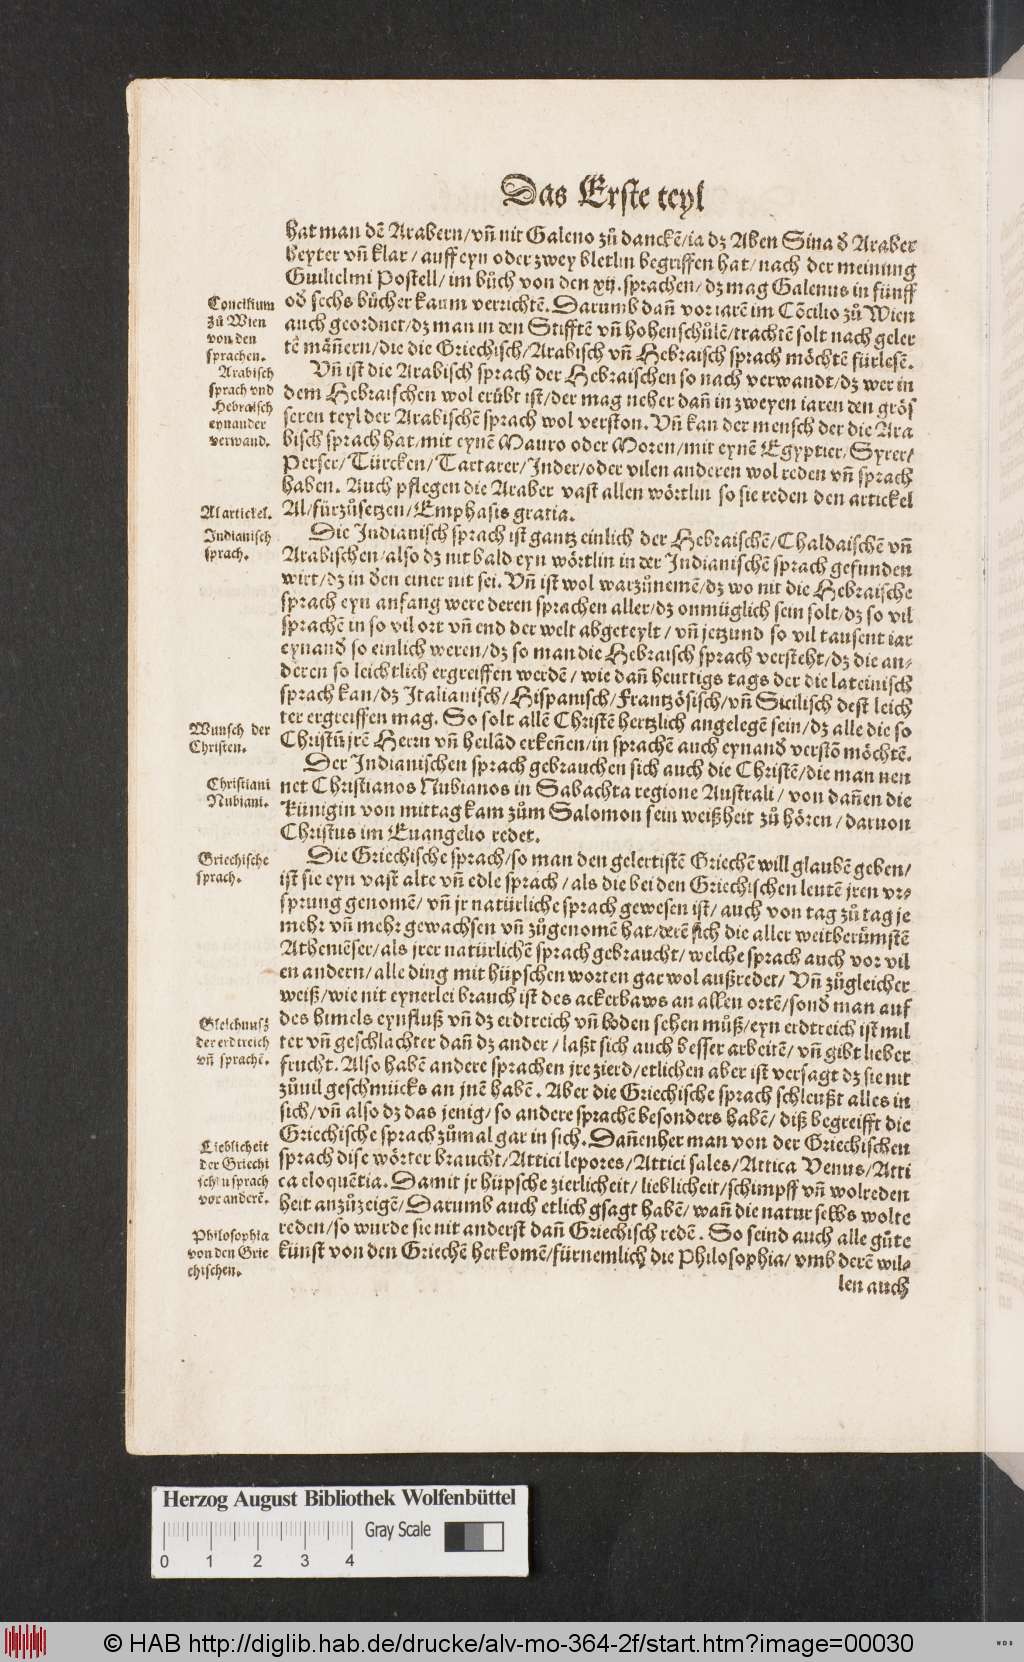 Das Erste teyl
hat man dē Arabern/vñ nit Galeno zů danckē/ia dz Aben Sina ď Araber
beyter vñ klar/auff eyn oder zwey bletlin begriffen hat/nach der meinung
Guilielmi Postell/im bůch von den xij.sprachen/dz mag Galenus in fünff
oď sechs bücher kaum verrichtē. Darumb dañ vor iarē im Cōcilio zů Wien
auch geordnet/dz man in den Stifftē vñ hohenschůlē/trachtē solt nach geler
tē mäñern/die die Griechisch/Arabisch vñ Hebraisch sprach möchtē fürlesē.
Concilium
zů Wien
von den
sprachen.
Vñ ist die Arabisch sprach der Hebraischen so nach verwandt/dz wer in
dem Hebraischen wol erübt ist/der mag neher dañ in zweyen iaren den grös
seren teyl der Arabischē sprach wol verston. Vñ kan der mensch der die Ara
bisch sprach hat/mit eynē Mauro oder Moren/mit eynē Egyptier/Syrer/
Perser/Türcken/Tartarer/Inder/oder vilen anderen wol reden vñ sprach
haben. Auch pflegen die Araber vast allen wörtlin so sie reden den artickel
Al/fürzůsetzen/Emphasis gratia.
Arabisch
sprach vnd
Hebraisch
eynander
verwand.
Al artickel.
Die Indianisch sprach ist gantz einlich der Hebraischē/Chaldaischē vñ
Arabischen/also dz nit bald eyn wörtlin in der Indianischē sprach gefunden
wirt/dz in ďen einer nit sei. Vñ ist wol warzůnemē/dz wo nit die Hebraische
sprach eyn anfang were deren sprachen aller/dz onmüglich sein solt/dz so vil
sprachē in so vil ort vñ end der welt abgeteylt/vñ jetzund so vil tausent iar
eynanď so einlich weren/dz so man die Hebraisch sprach versteht/dz die an-
deren so leichtlich ergreiffen werdē/wie dañ heuttigs tags der die lateinisch
sprach kan/dz Italianisch/Hispanisch/Frantzösisch/vñ Sicilisch dest leich
ter ergreiffen mag. So solt allē Christē hertzlich angelegē sein/dz alle die so
Christū jrē Herrn vñ heilād erkeñen/in sprachē auch eynanď verstō möchtē.
Indianisch
sprach.
Wunsch der
Christen.
Der Indianischen sprach gebrauchen sich auch die Christē/die man nen
net Christianos Nubianos in Sabachta regione Australi/von dañen die
Künigin von mittag kam zům Salomon sein weißheit zů hören/daruon
Christus im Euangelio redet.
Christiani
Nubiani.
Die Griechische sprach/so man den gelertistē Griechē will glaubē geben/
ist sie eyn vast alte vñ edle sprach/als die bei den Griechischen leutē jren vr-
sprung genomē/vñ jr natürliche sprach gewesen ist/auch von tag zů tag je
mehr vñ mehr gewachsen vñ zůgenomē hat/derē sich die aller weitberümstē
Athenieser/als jrer natürlichē sprach gebraucht/welche sprach auch vor vil
en andern/alle ding mit hüpschen worten gar wol außredet/Vñ zůgleicher
weiß/wie nit eynerlei brauch ist des ackerbaws an allen ortē/sonď man auf
des himels eynfluß vñ dz erdtreich vñ boden sehen můß/eyn erdtreich ist mil
ter vñ geschlachter dañ dz ander/laßt sich auch besser arbeitē/vñ gibt lieber
frucht. Also habē andere sprachen jre zierd/etlichen aber ist versagt dz sie nit
zůuil geschmücks an jnē habē. Aber die Griechische sprach schleußt alles in
sich/vñ also dz das jenig/so andere sprachē besonders habē/diß begreifft die
Griechische sprach zůmal gar in sich. Dañenher man von der Griechischen
sprach dise wörter braucht/Attici lepores/Attici sales/Attica Venus/Atti
ca eloquētia. Damit jr hüpsche zierlicheit/lieblicheit/schimpff vñ wolreden
heit anzůzeigē/Darumb auch etlich gsagt habē/wañ die natur selbs wolte
reden/so wurde sie nit anderst dañ Griechisch redē. So seind auch alle gůte
künst von den Griechē herkomē/fürnemlich die Philosophia/vmb derē wil-
len auch
Griechische
sprach.
Gleichnusz
der erdtreich
vñ sprachē.
Lieblicheit
der Griechi
schen sprach
vor anderē.
Philosophia
von den Grie
chischen.
Herzog August Bibliothek Wolfenbüttel
Gray Scale
0 1 2 3 4
© HAB http://diglib.hab.de/drucke/alv-mo-364-2f/start.htm?image=00030